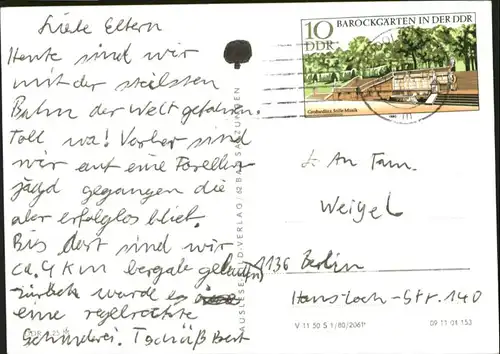 Liebe Eltern
Heute sind wir
mit der steilsten
Bahn der Welt gefahren.
Toll wa! Vorher sind
wir auf eine Forellen
jagd gegangen die
aber erfolglos blieb.
Bis dort sind wir
ca. 4 km bergab gelaufen
zurück wurde es
eine regelrechte
Schinderei. Tschüß Bert
10
DDR
BAROCKGÄRTEN IN DER DDR
Großsedlitz, Stille Musik
Fam.
Weigel
1136 Berlin
Hans-Loch-Str. 140
AUSLESE-BILD-VERLAG / 62 BAD SALZUNGEN
V 11 50 S 1/80/2061
09 11 01 153